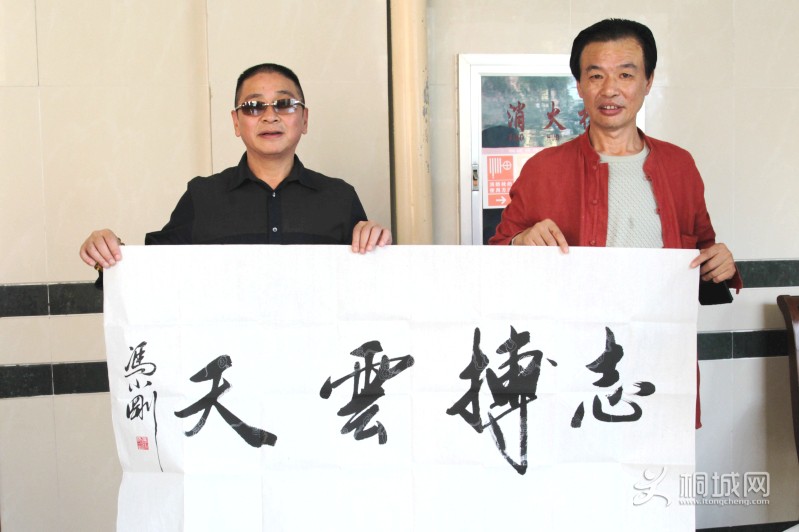 消火栓
志搏雲天
馮小剛
桐城网
www.itongcheng.com